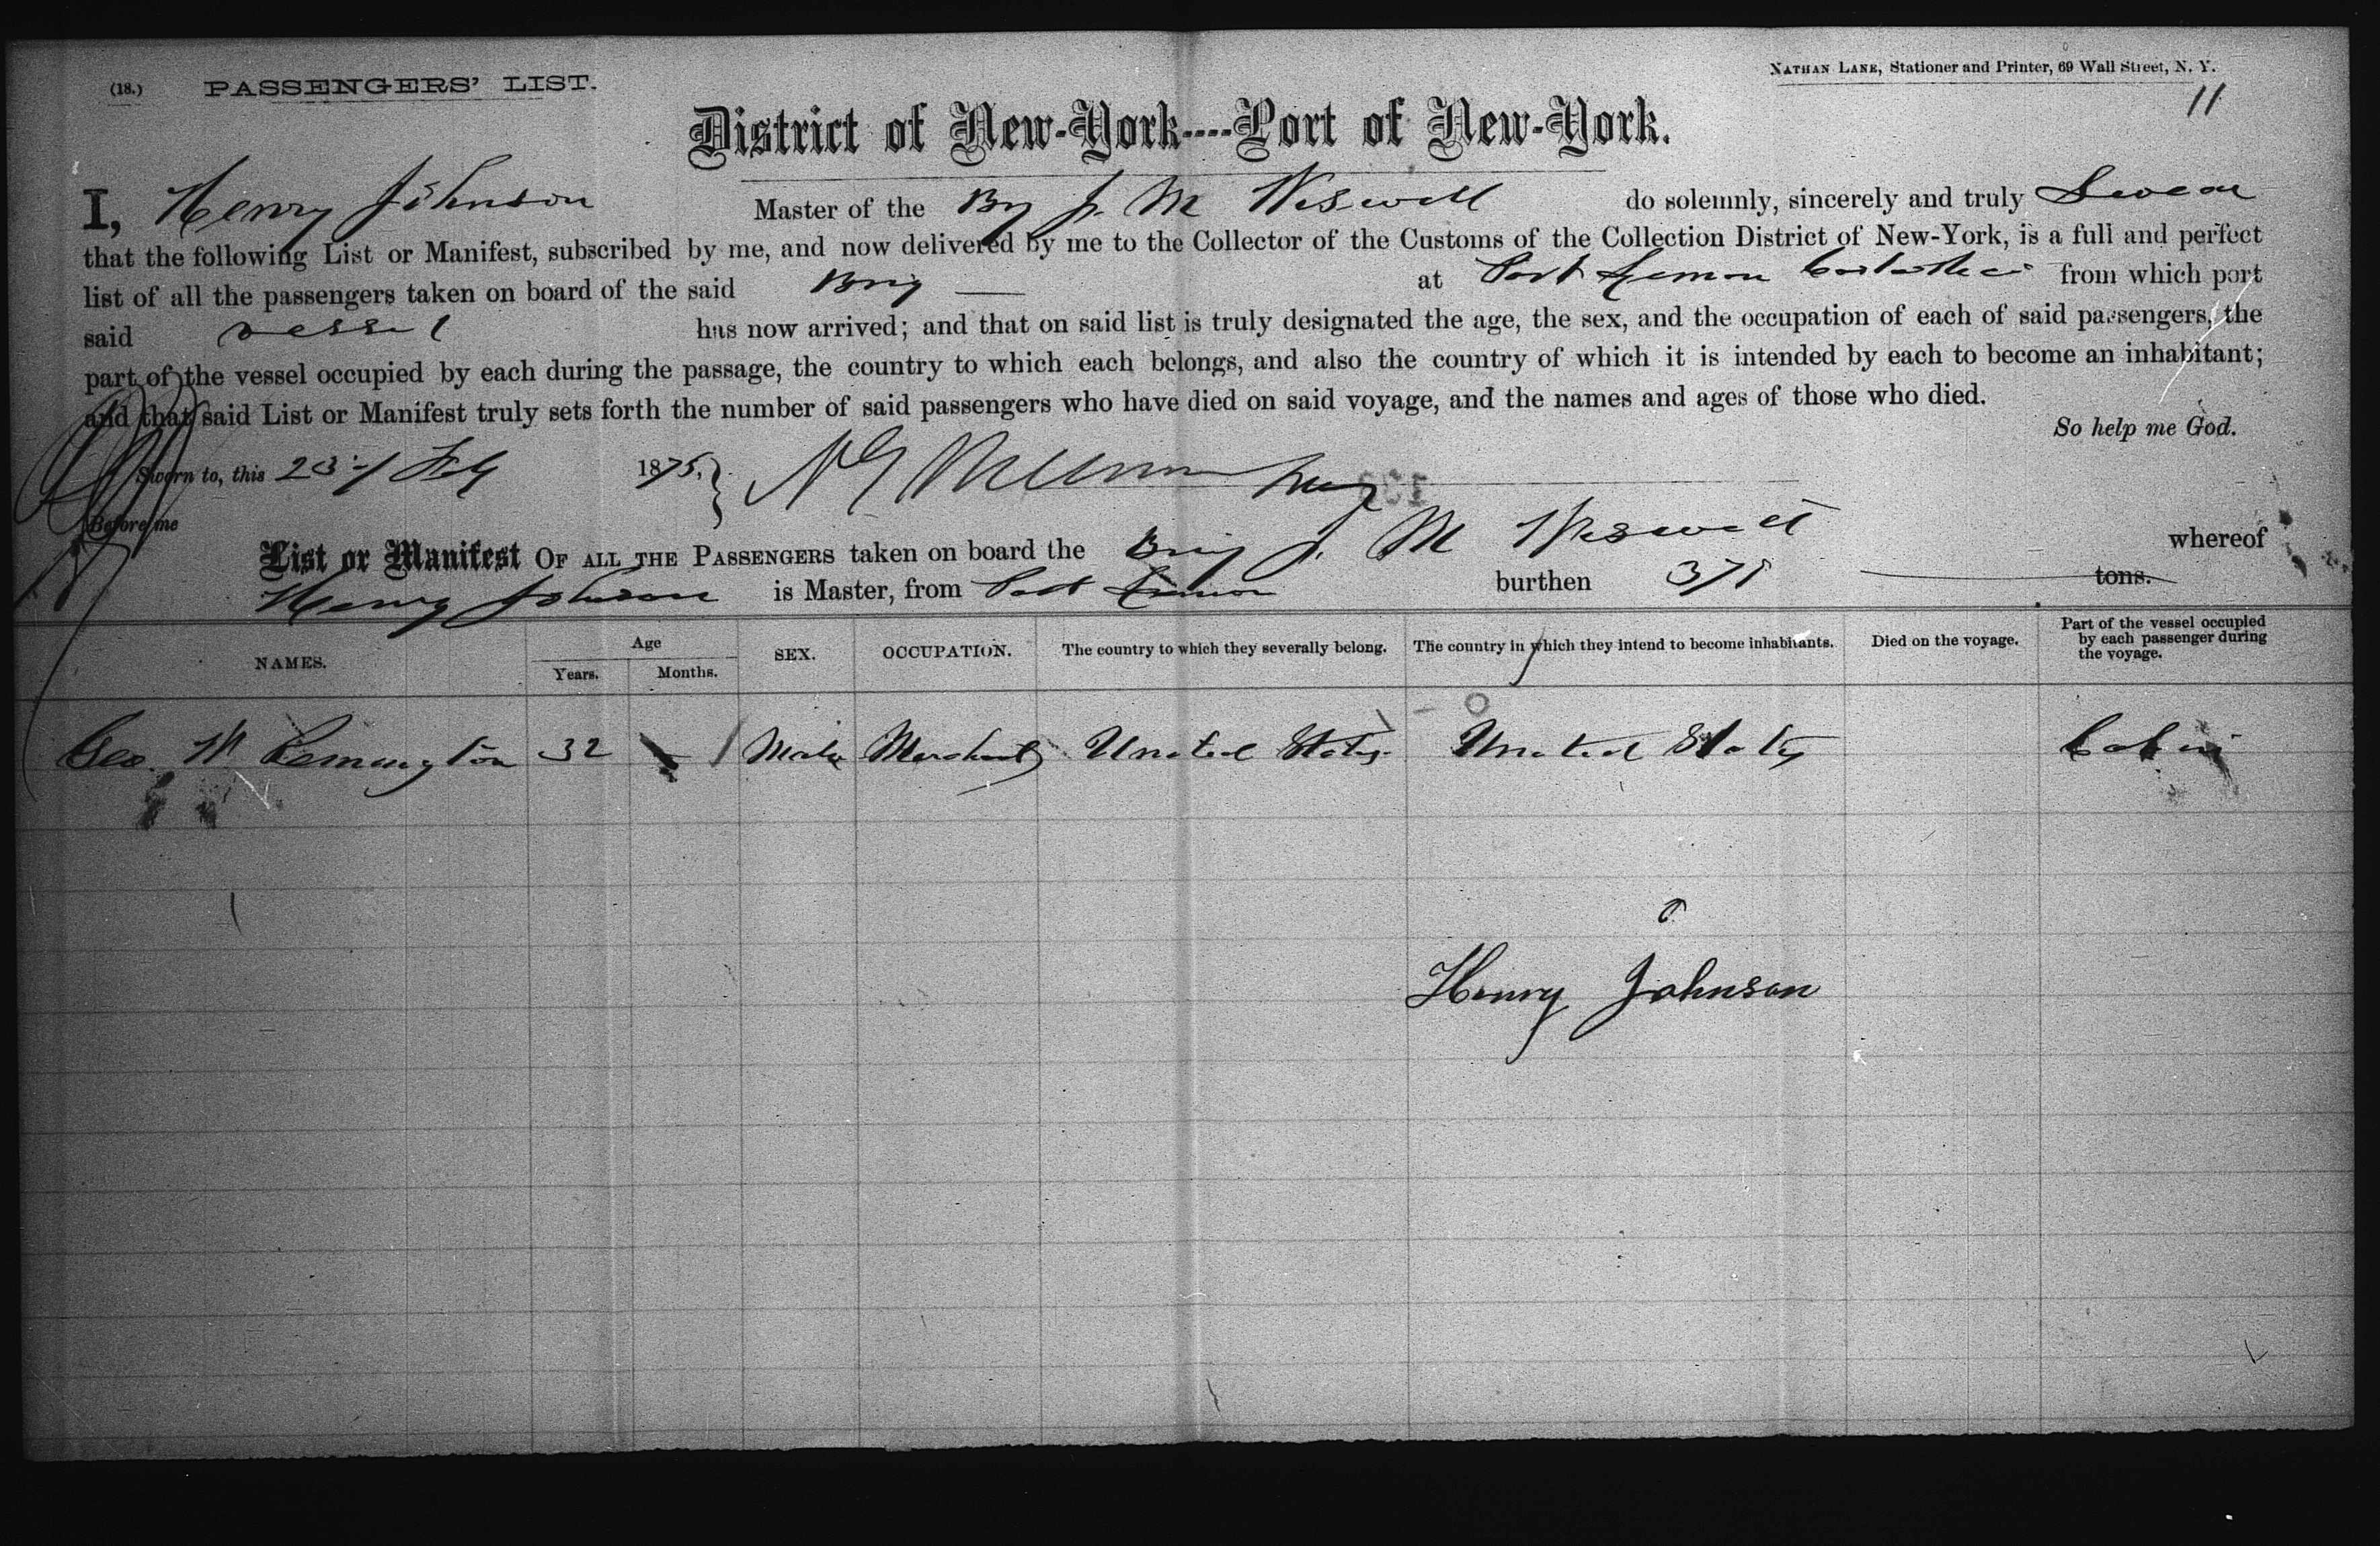 (18.) PASSENGERS' LIST.
NATHAN LANE, Stationer and Printer, 69 Wall Street, N. Y.
11
District of New-York----Port of New-York.
I, Henry Johnson Master of the Brig J. M Wiswell do solemnly, sincerely and truly Swear
that the following List or Manifest, subscribed by me, and now delivered by me to the Collector of the Customs of the Collection District of New-York, is a full and perfect
list of all the passengers taken on board of the said Brig at Port Limon from which port
said vessel has now arrived; and that on said list is truly designated the age, the sex, and the occupation of each of said passengers, the
part of the vessel occupied by each during the passage, the country to which each belongs, and also the country of which it is intended by each to become an inhabitant;
and that said List or Manifest truly sets forth the number of said passengers who have died on said voyage, and the names and ages of those who died.
So help me God.
Sworn to, this Feby 1875.
Before me
List or Manifest OF ALL THE PASSENGERS taken on board the Brig J. M Wiswell whereof
Henry Johnson is Master, from Port Limon burthen tons.
NAMES. Age Years. Months. SEX. OCCUPATION. The country to which they severally belong. The country in which they intend to become inhabitants. Died on the voyage. Part of the vessel occupied by each passenger during the voyage.
Geo. W Remington 32 Male Merchant United States United States Cabin
Henry Johnson